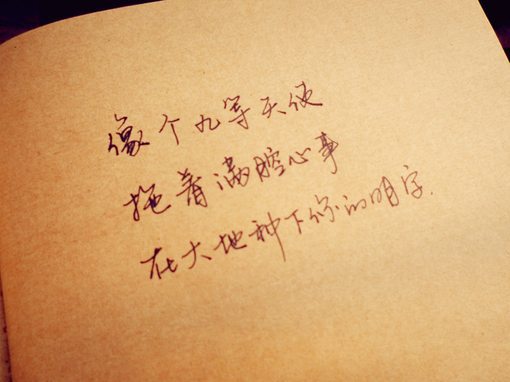 像个九等天使
拖着满腔心事
在大地种下你的明字.